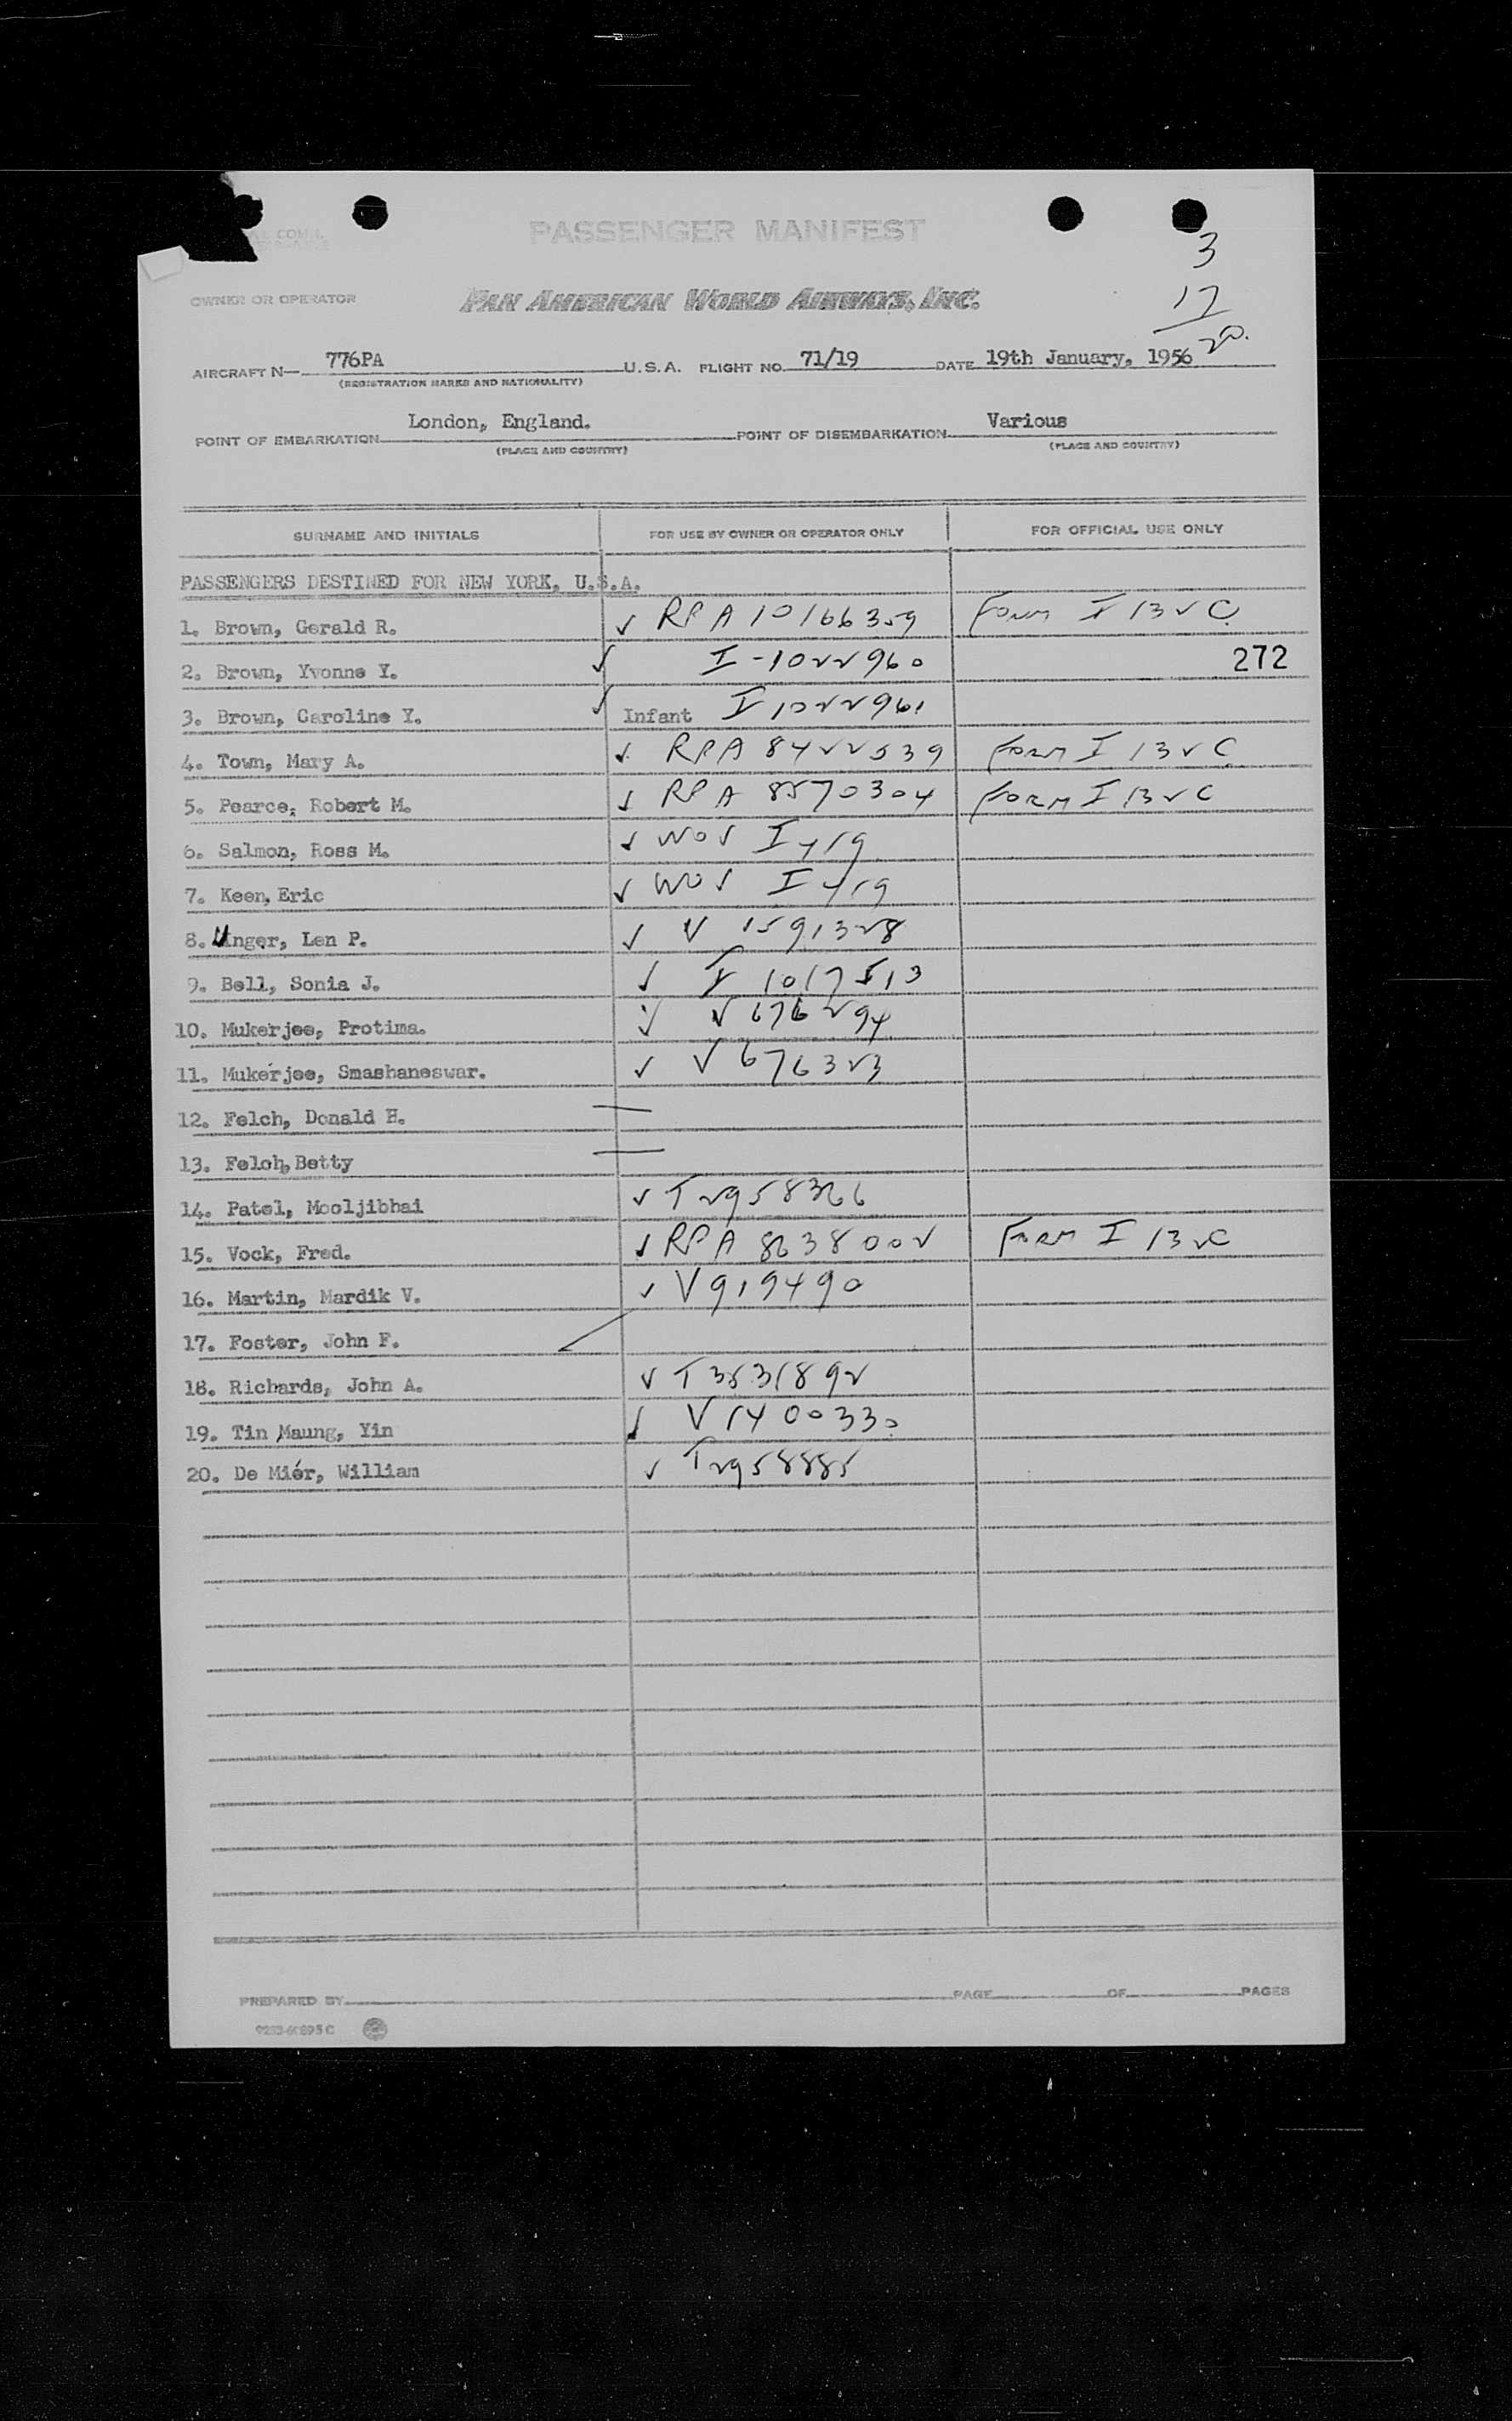 PASSENGER MANIFEST
3
17
20.
OWNER OR OPERATOR PAN AMERICAN WORLD AIRWAYS, INC.
AIRCRAFT N— 776PA U.S.A. FLIGHT NO. 71/19 DATE 19th January, 1956
(REGISTRATION MARKS AND NATIONALITY)
POINT OF EMBARKATION London, England. POINT OF DISEMBARKATION Various
(PLACE AND COUNTRY) (PLACE AND COUNTRY)
SURNAME AND INITIALS FOR USE BY OWNER OR OPERATOR ONLY FOR OFFICIAL USE ONLY
PASSENGERS DESTINED FOR NEW YORK, U.S.A.
1. Brown, Gerald R. ✓ RPA 10166359 Form I 132C
2. Brown, Yvonne Y. ✓ I-1022960 272
3. Brown, Caroline Y. ✓ Infant I 1022961
4. Town, Mary A. ✓ RPA 8422539 Form I 132C
5. Pearce, Robert M. ✓ RPA 8570304 FORM I 132C
6. Salmon, Ross M. ✓ I 419
7. Keen, Eric ✓ I 419
8. Unger, Len P. ✓ V 1591328
9. Bell, Sonia J. ✓ I 1017513
10. Mukerjee, Protima. ✓ V 676294
11. Mukerjee, Smashaneswar. ✓ V 676323
12. Felch, Donald H. —
13. Felch, Betty —
14. Patel, Mooljibhai ✓ T 2958366
15. Vock, Fred. ✓ RPA 8638002 FORM I 132C
16. Martin, Mardik V. ✓ V 919490
17. Foster, John F.
18. Richards, John A. ✓ T 3531892
19. Tin Maung, Yin ✓ V 1400330
20. De Miér, William ✓ T 2958885
PREPARED BY PAGE OF PAGES